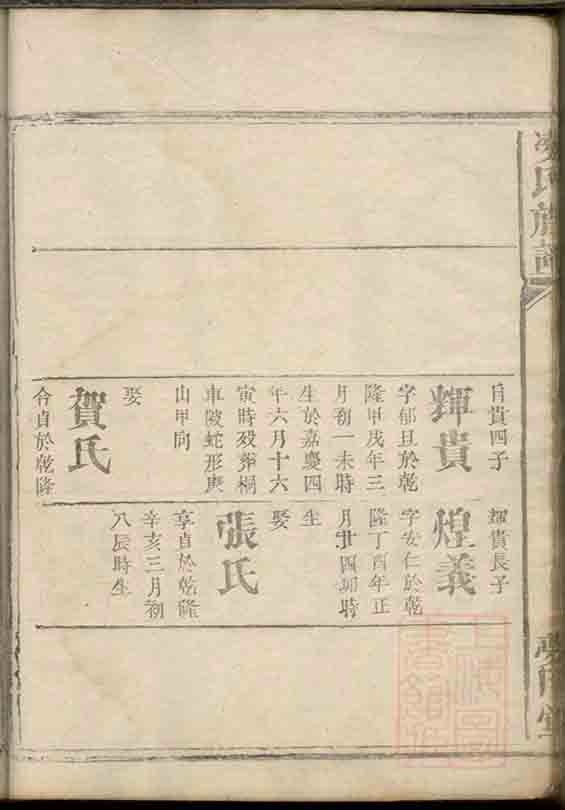 氏族譜
自貴四子
輝貴
字郁旦於乾
隆甲戌年三
月初一未時
生於嘉慶四
年六月十六
寅時歿葬桐
車陂蛇形庚
山甲向
娶
賀氏
合貞於乾隆
輝貴長子
煌義
字安仁於乾
隆丁酉年正
月廿四卯時
生
娶
張氏
享貞於乾隆
辛亥三月初
八辰時生